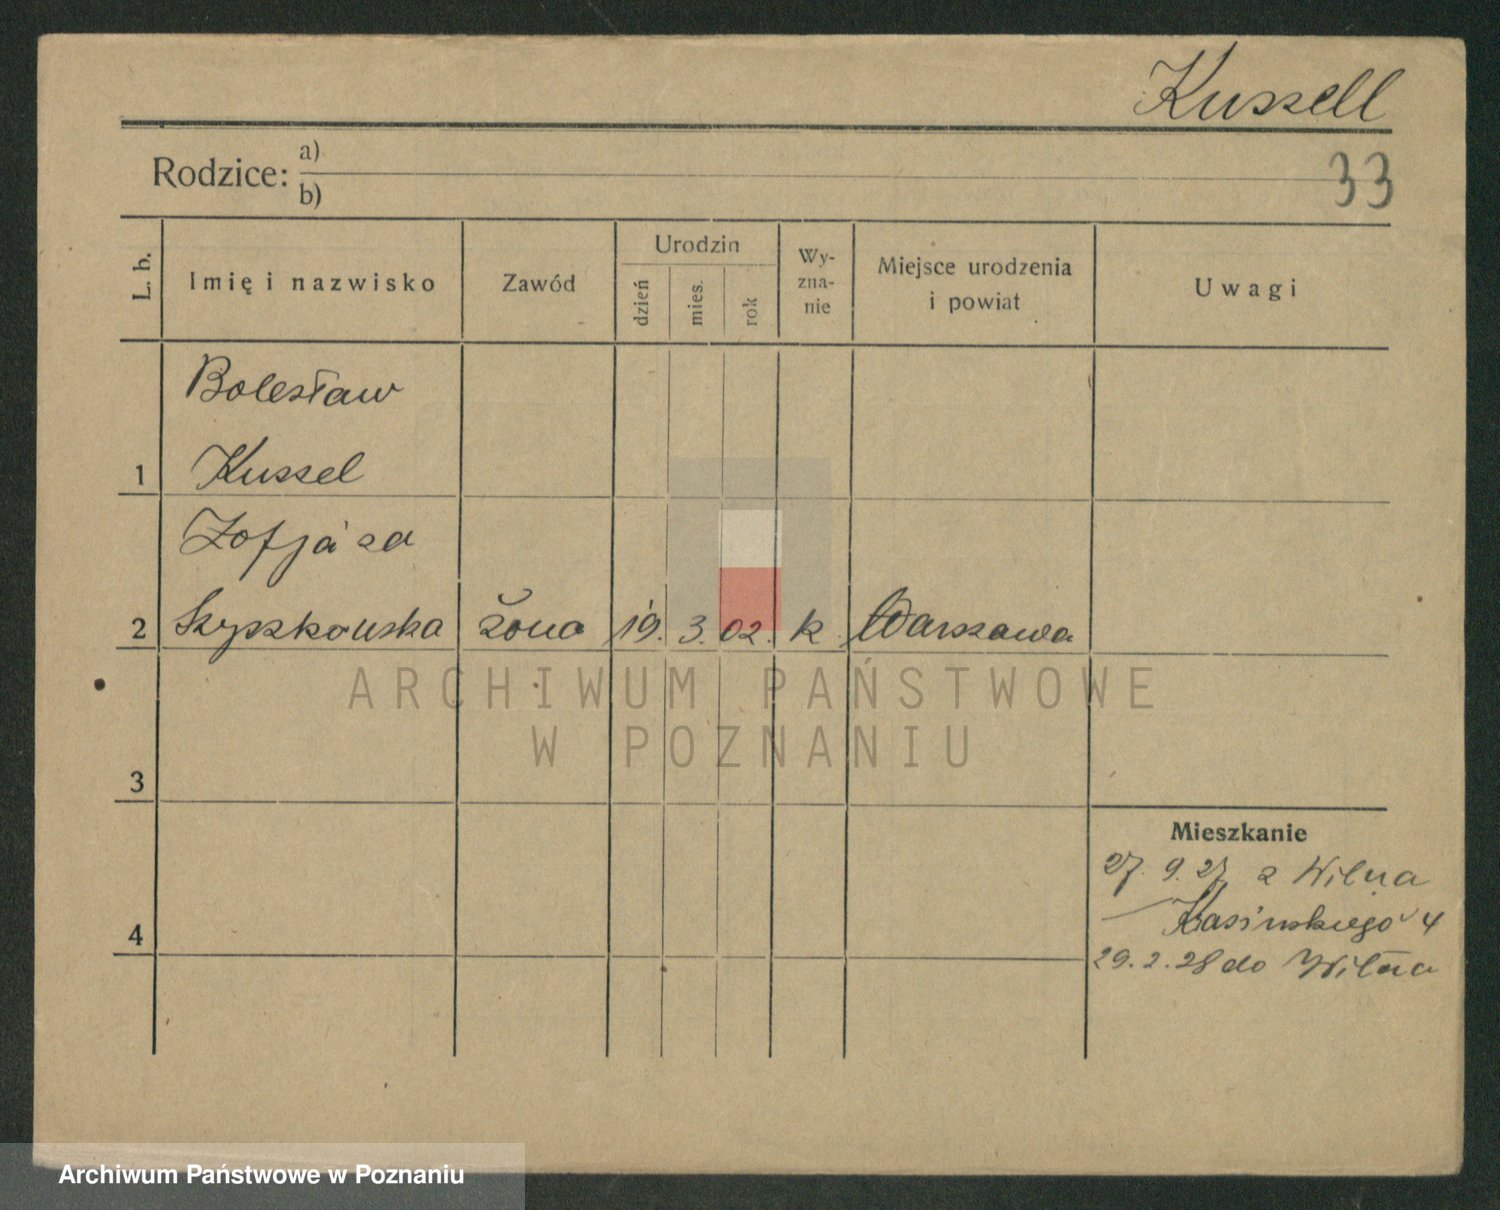 Kussell
Rodzice: a)
b)
33
L. b.
Imię i nazwisko
Zawód
Urodzin
dzień
mies.
rok
Wy-
zna-
nie
Miejsce urodzenia
i powiat
Uwagi
Bolesław
1 Kussel
Zofja za
2 Szyszkowska żona 19. 3. 02. k. Warszawa
ARCHIWUM PAŃSTWOWE
W POZNANIU
3
Mieszkanie
27. 9. 27 z Wilna
Krasińskiego 4
4
29. 2. 28 do Wilna
Archiwum Państwowe w Poznaniu